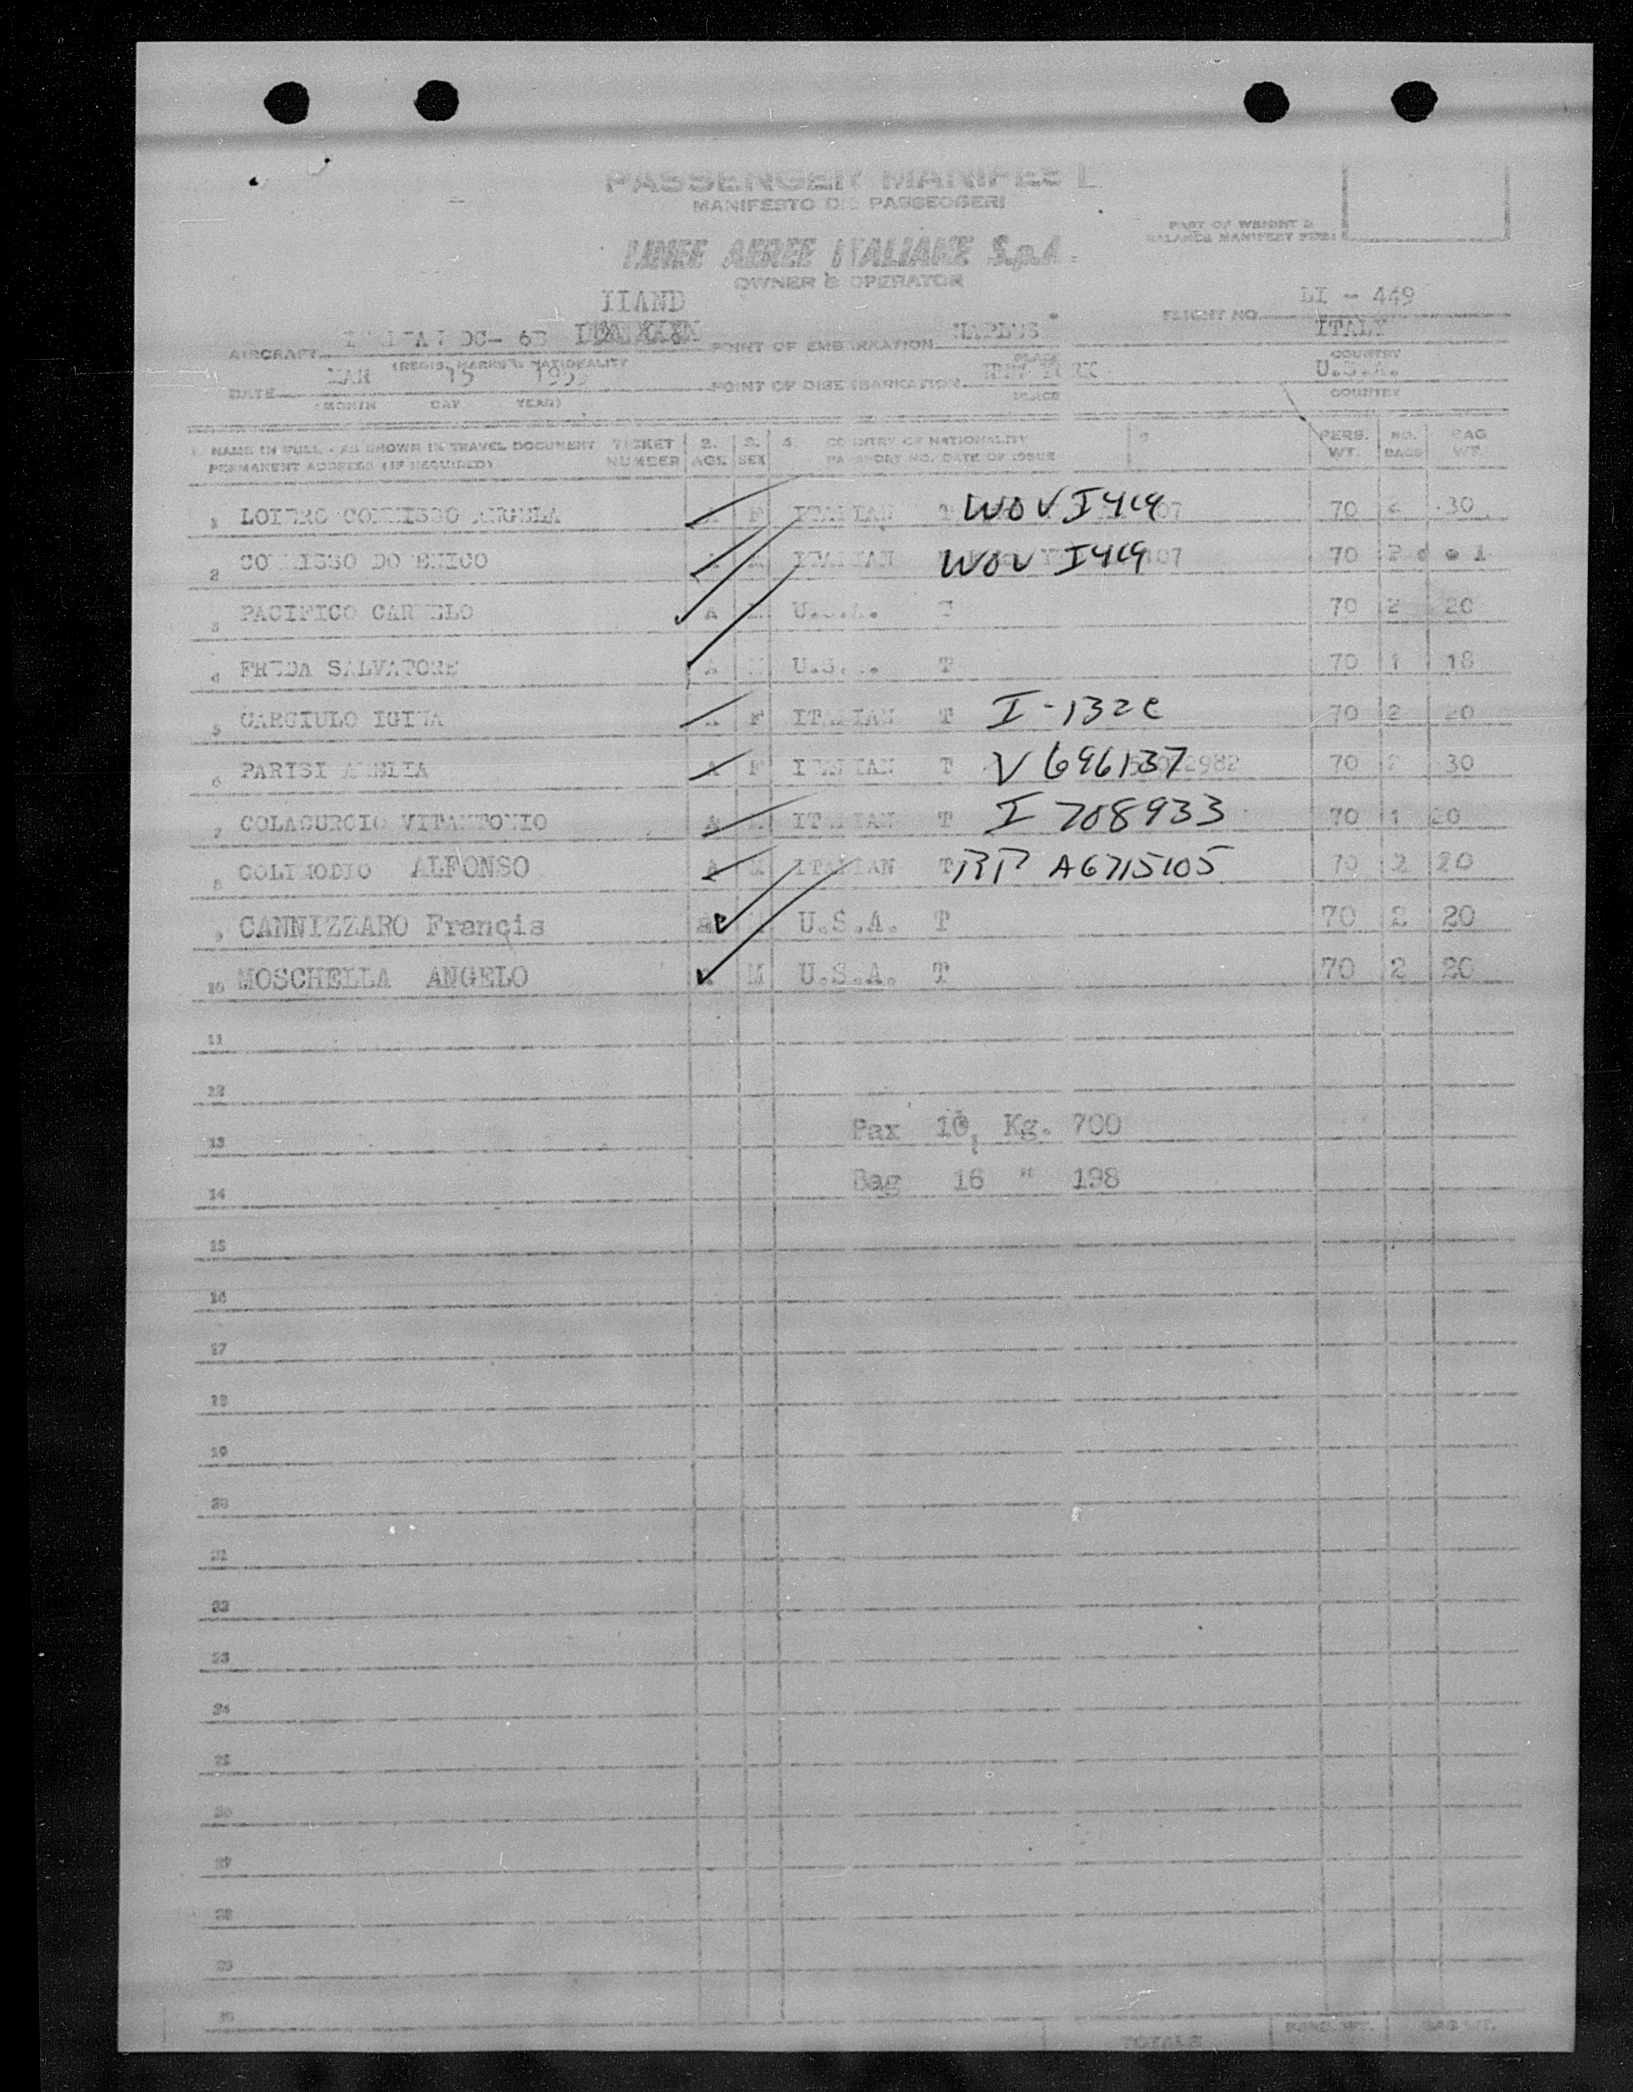 PASSENGER MANIFEST
MANIFESTO DEI PASSEGGERI
PART OF WEIGHT &
BALANCE MANIFEST FORM
LINEE AEREE ITALIANE S.p.A.
OWNER & OPERATOR
IIAND
LI - 449
FLIGHT NO.
AIRCRAFT DC- 6B
POINT OF EMBARKATION NAPLES ITALY
(REGIS. MARKS & NATIONALITY PLACE COUNTRY
DATE MAR 15 195
POINT OF DISEMBARKATION NEW YORK U.S.A.
(MONTH DAY YEAR) PLACE COUNTRY
1. NAME IN FULL - AS SHOWN IN TRAVEL DOCUMENT TICKET 2. 3. 4. COUNTRY OF NATIONALITY PERS. NO. BAG
PERMANENT ADDRESS (IF REQUIRED) NUMBER AGE SEX PASSPORT NO. DATE OF ISSUE WT. BAGS WT.
1 LOIERO COMMISSO ANGELA F ITALIAN T WOV I419 07 70 2 30
2 COMMISSO DOMENICO ITALIAN WOV I419 107 70
3 PACIFICO CARMELO A U.S.A. T 70 2 20
4 FREDA SALVATORE A U.S.A. T 70 1 18
5 CARCIULO IGINA F ITALIAN T I-132c 70 2 20
6 PARISI AMELIA A F ITALIAN T V 696137 2982 70 2 30
7 COLACURCIO VITANTONIO A ITALIAN T I 708933 70 1 20
8 COLIMODIO ALFONSO A M ITALIAN T RP A6715105 70 2 20
9 CANNIZZARO Francis U.S.A. T 70 2 20
10 MOSCHELLA ANGELO M U.S.A. T 70 2 20
11
12
13 Pax 10, Kg. 700
14 Bag 16 " 198
15
16
17
18
19
20
21
22
23
24
25
26
27
28
29
30
TOTALS PERS. WT. BAG WT.